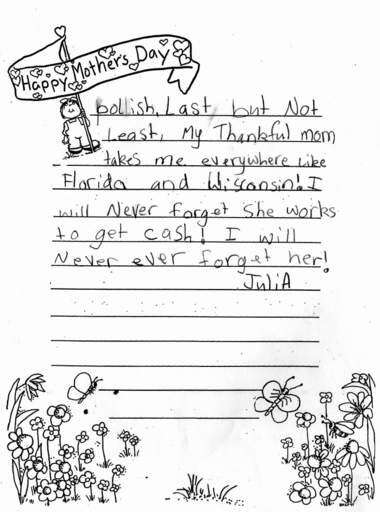 Happy Mothers Day
pollish, Last but Not
Least, My Thankful mom
takes me everywhere like
Florida and Wisconsin! I
will Never forget she works
to get cash! I will
Never ever forget her!
JuliA